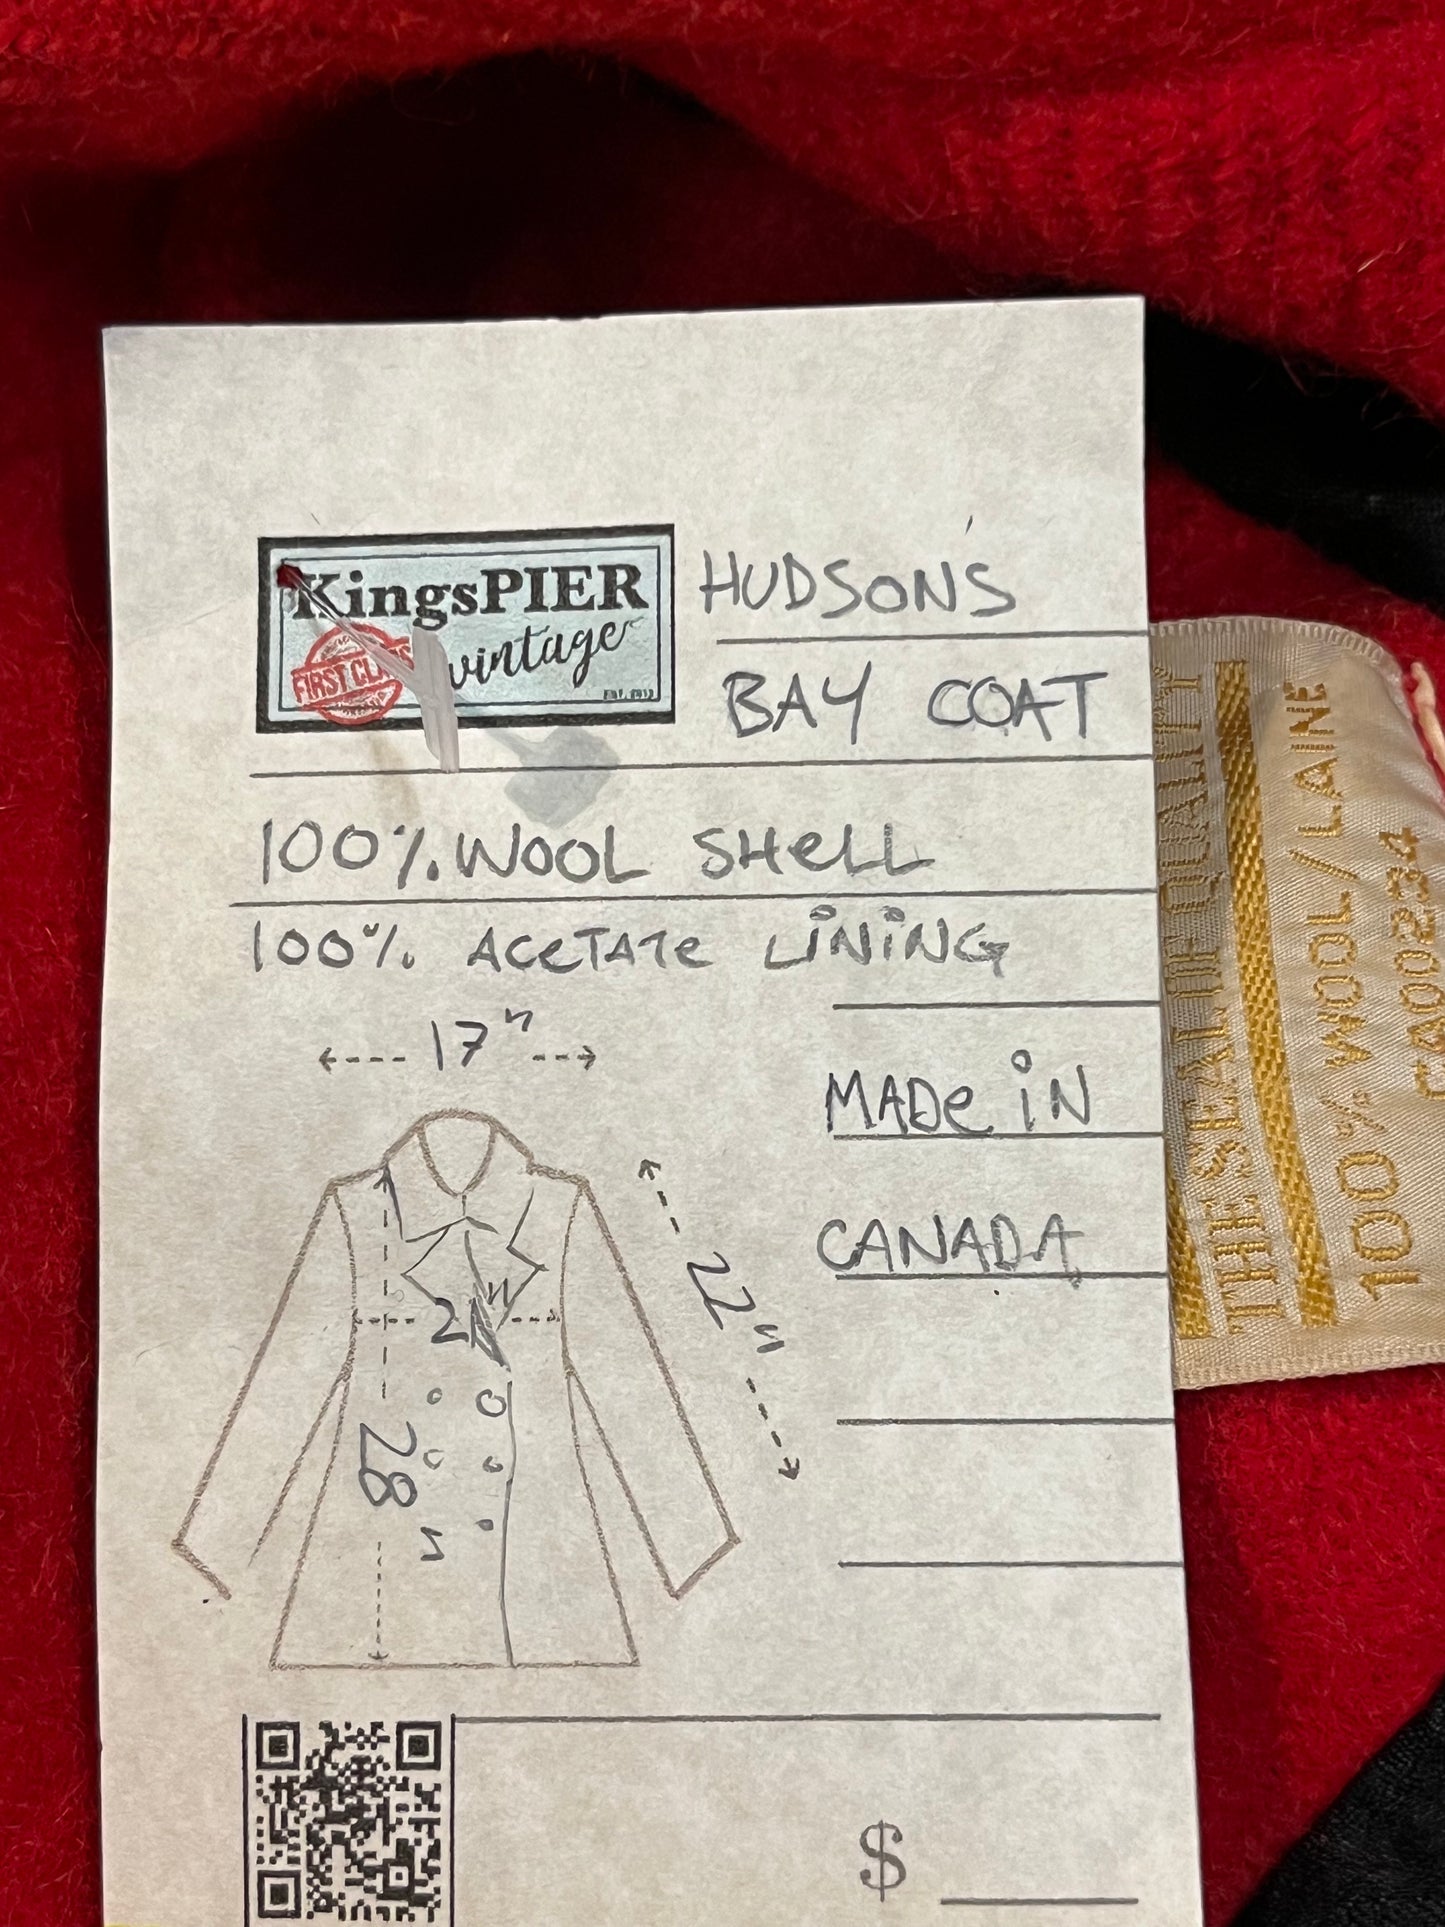 KingsPIER
vintage
FIRST CLASS
HUDSON'S
BAY COAT
100% WOOL SHELL
100% ACETATE LINING
17"
MADE IN
CANADA
22"
28"
$
THE SEAL OF QUALITY
100% WOOL/LAINE
CA00234